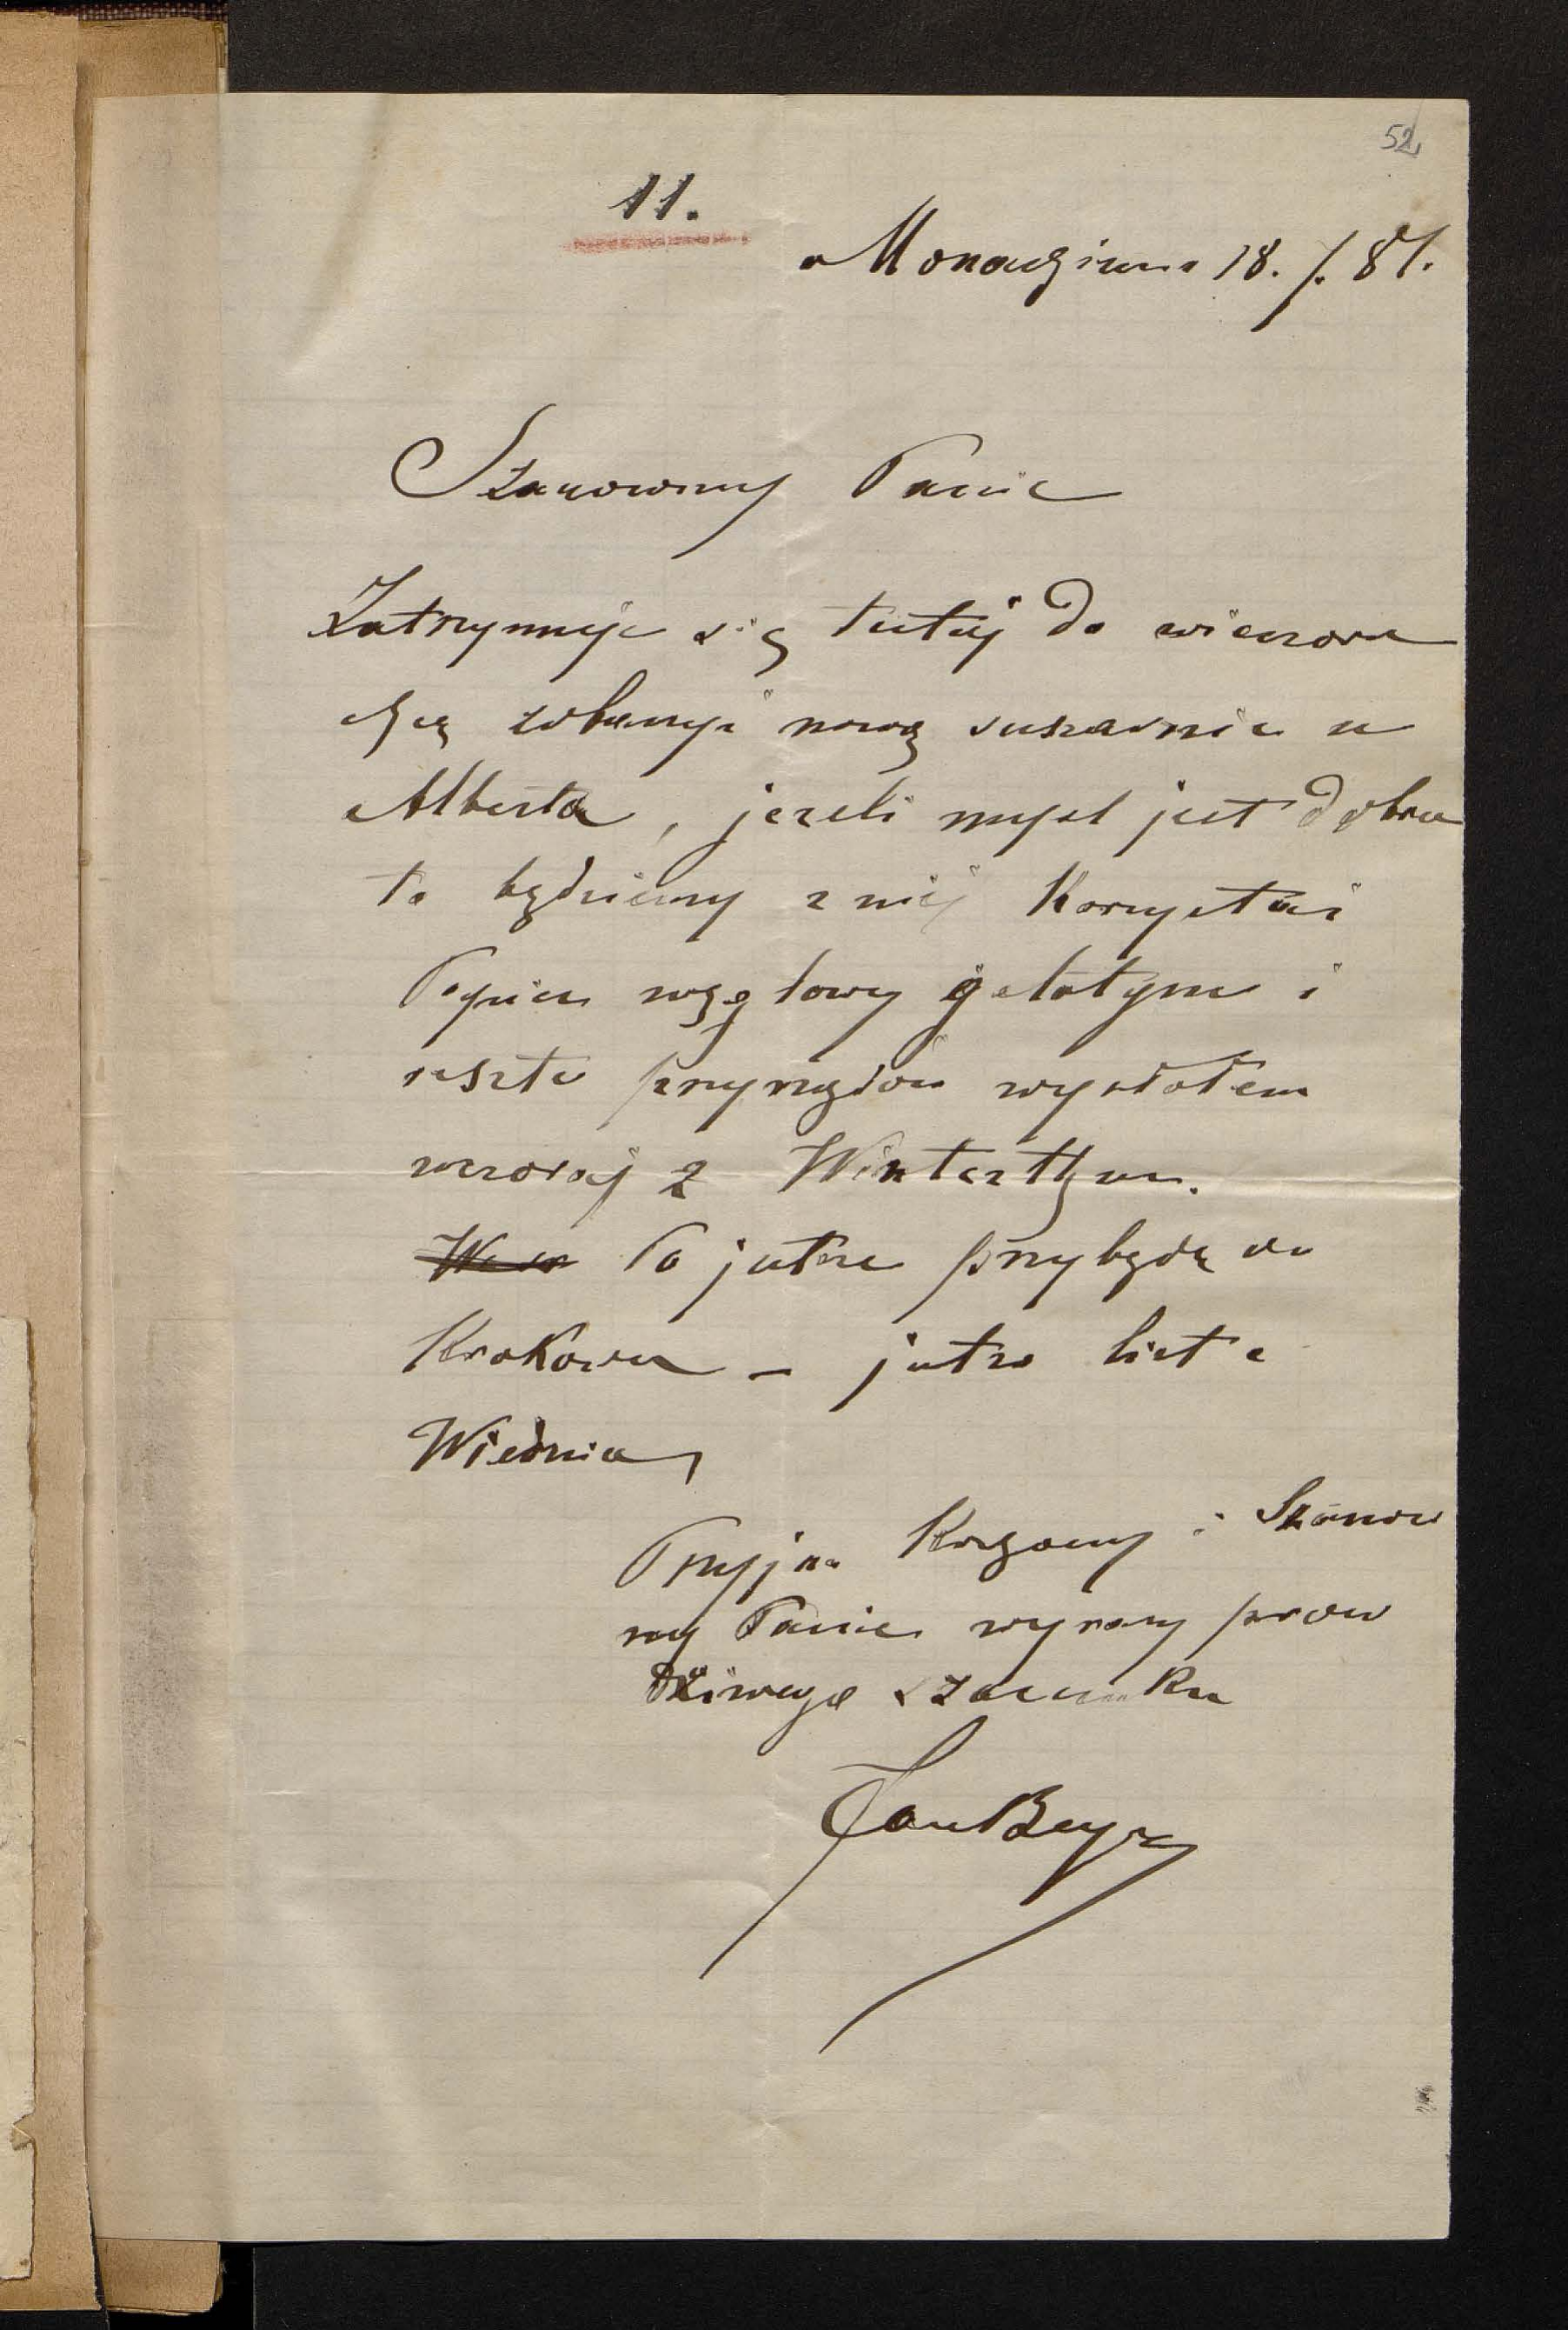 52
11.
Monachium 18. /. 81.
Szanowny Panie
Zatrzymuje się tutaj do wieczora
chcą zobaczyć nową suszarnie u
Alberta, jezeli mysl jest dobra
to będziemy z niej Korzystać
Papier węglowy gelatynę i
reszte przyrządów wysłałem
wczoraj z Winterthur.
Po jutrze przybędę do
Krakowa – jutro list z
Wiednia,
Przyjm Kochany i Szanow
ny Panie wyrazy praw
dziwego szacunku
Jan Beyer